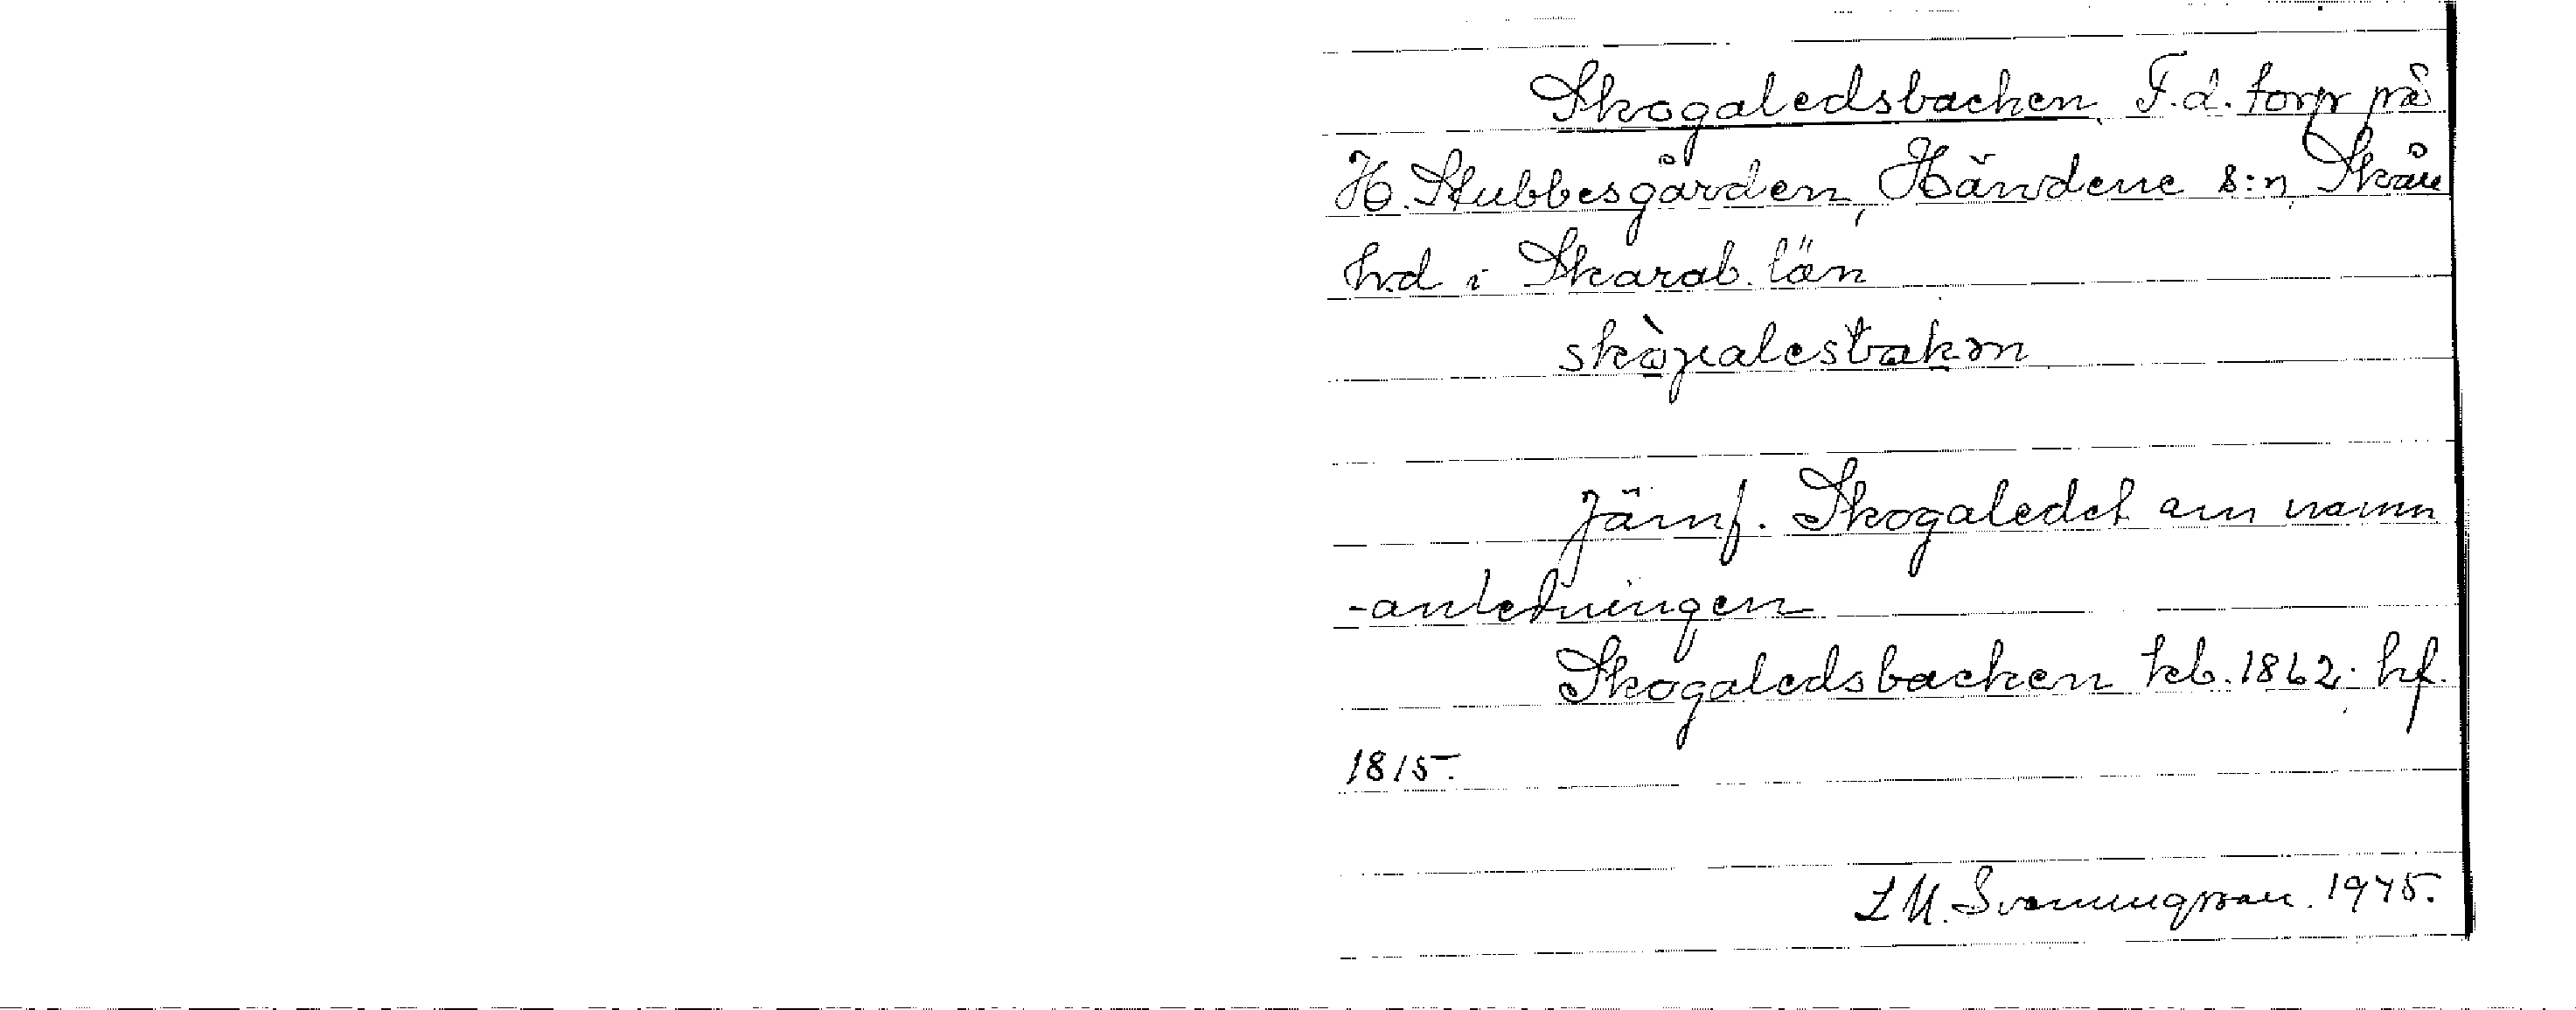 Skogaledsbacken, F.d. torp på
H. Stubbesgården, Händene s:n, Skån
hd i Skarab. län
Jämf. Skogaledet om namn
-anledningen
Skogaledsbacken kb. 1862. hf.
1815.
L M. Svenungsson. 1945.